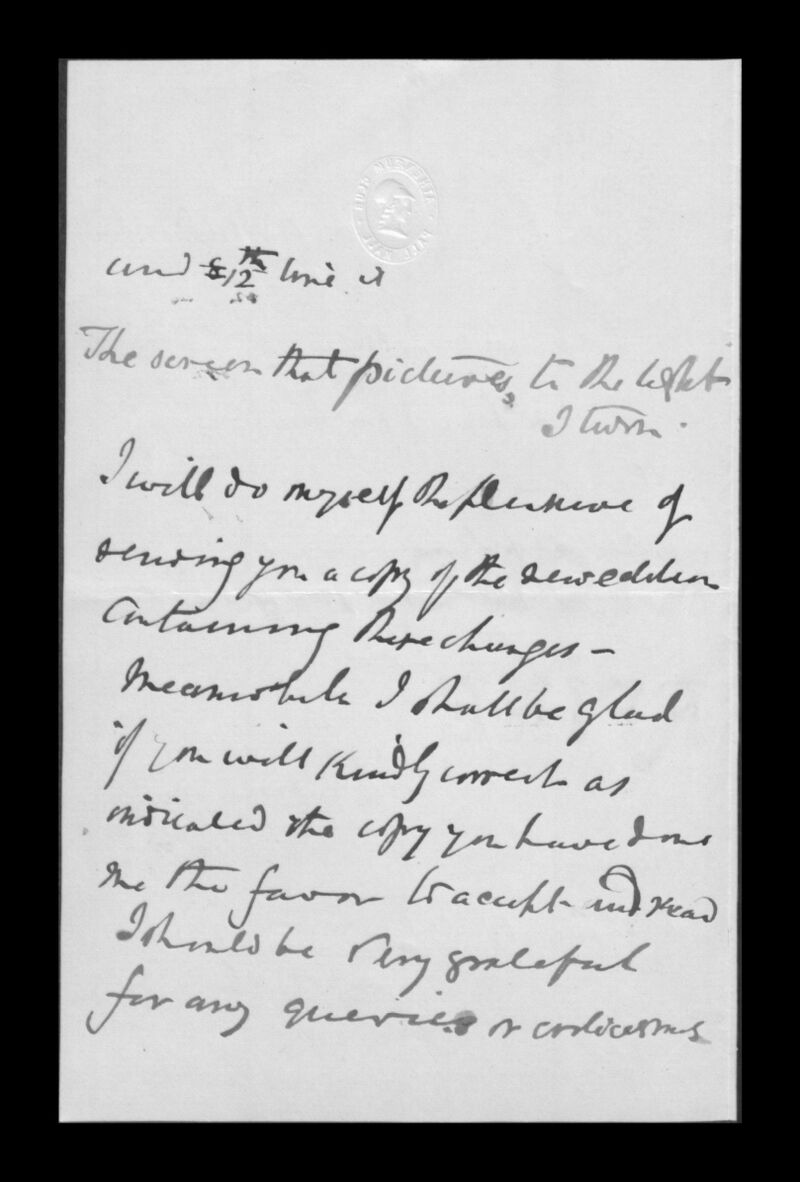 and 12th line is
The screen that pictures, to the light
I turn.
I will do myself the pleasure of
sending you a copy of the new edition
containing these changes —
Meanwhile I shall be glad
if you will kindly correct as
indicated the copy you have done
me the favor to accept and read
I should be very grateful
for any queries or criticisms